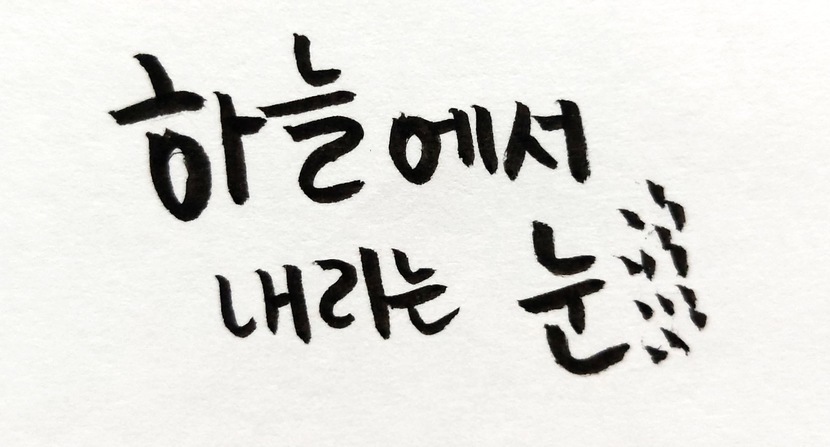 하늘에서
내리는 눈